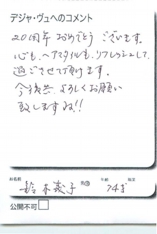 デジャ・ヴュへのコメント
20周年 おめでとう ございます。
心も、ヘアスタイルも、リフレッシュして、
過ごさせて頂けます。
今後共 よろしくお願い
致しますね!!
お名前 鈴木義子 74才
公開不可□